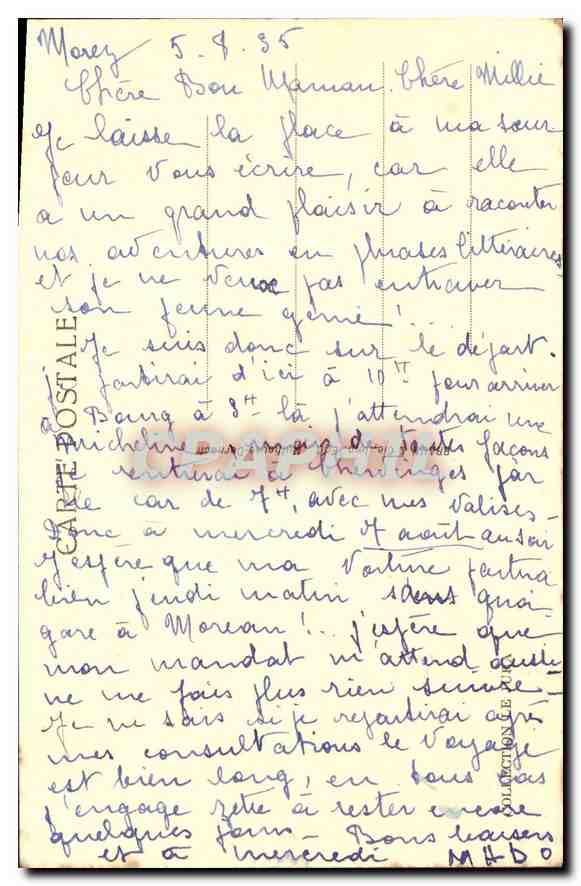 Morez 5.8.35
Chère Bon Maman. Chère Millie
Je laisse la place à ma sœur
pour vous écrire, car elle
a un grand plaisir à raconter
nos aventures en phrases littéraires
et je ne veux pas entraver
son jeune génie!...
Je suis donc sur le départ.
partirai d'ici à 10H pour arriver
à Bourg à 3H là j'attendrai une
micheline de toutes façons
je rentrerai à par
le car de 7H, avec mes valises
Donc à mercredi 7 août au soir
J'espère que ma voiture partira
bien jeudi matin sans quoi
gare à Moreau!.. j'espère que
mon mandat m'attend
ne me fais plus rien suivre
Je ne sais si je repartirai après
mes consultations le voyage
est bien long, en tous cas
j'engage à rester encore
quelques jours - Bons baisers
et à mercredi MADO
CARTE POSTALE
CPAPHIL